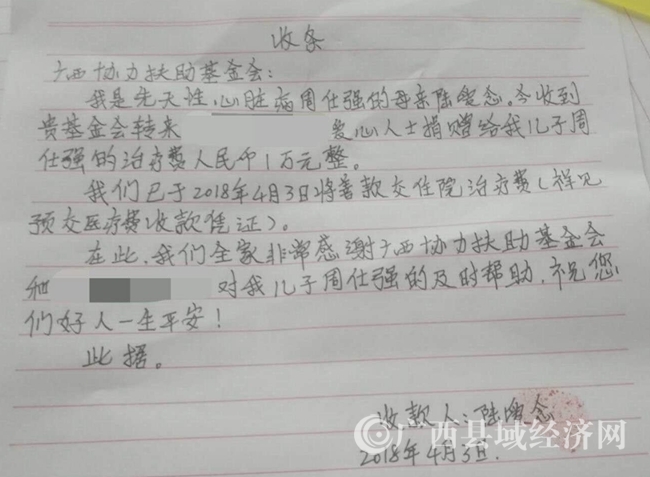 收条
广西协力扶助基金会：
我是先天性心脏病周仕强的母亲陆爱念。今收到
贵基金会转来 爱心人士捐赠给我儿子周
仕强的治疗费人民币1万元整。
我们已于2018年4月3日将善款交住院治疗费（详见
预交医疗费收款凭证）。
在此，我们全家非常感谢广西协力扶助基金会
和 对我儿子周仕强的及时帮助，祝您
们好人一生平安！
此据。
收款人：陆爱念
2018年4月3日.
广西县域经济网